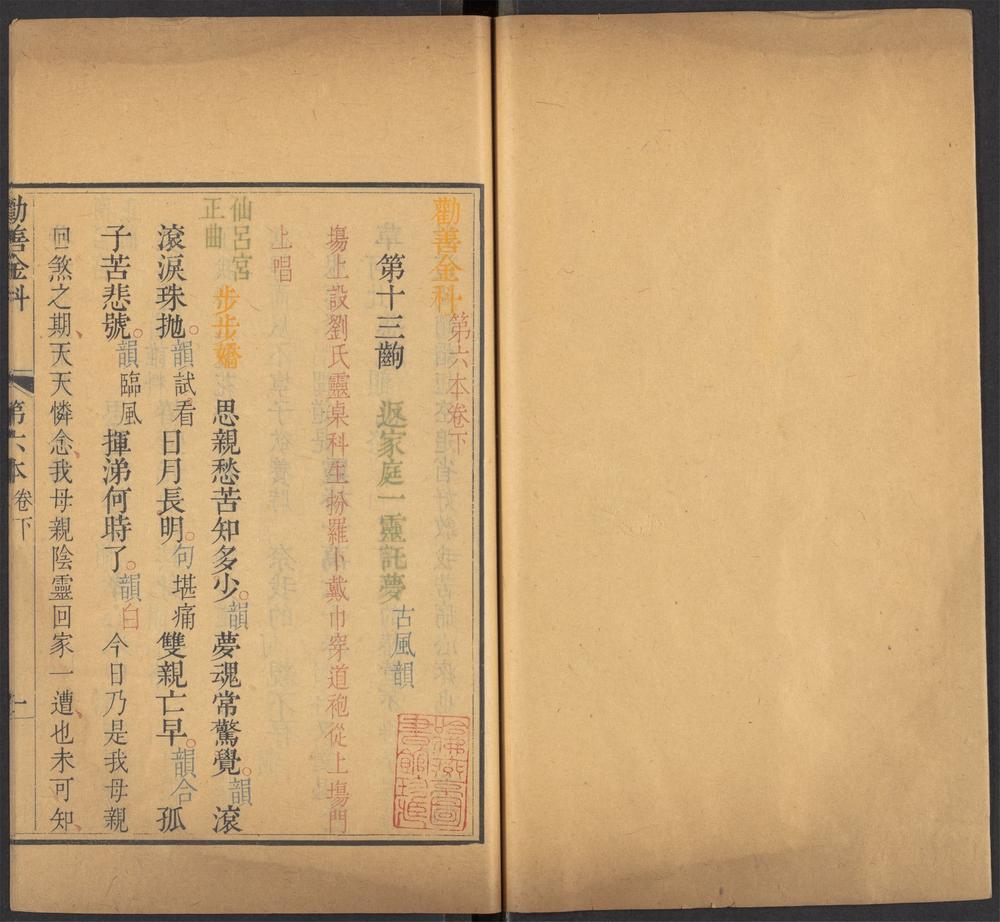 勸善金科 第六本卷下
第十三齣 返家庭一靈託夢 古風韻
場上設劉氏靈桌科生扮羅卜戴巾穿道袍從上場門
上唱
仙呂宮正曲 步步嬌 思親愁苦知多少。韻夢魂常驚覺。韻滾
滾淚珠拋。韻試看日月長明。句堪痛雙親亡早。韻合孤
子苦悲號。韻臨風揮涕何時了。韻白今日乃是我母親
回煞之期、天天憐念、我母親陰靈回家一遭、也未可知、
勸善金科 第六本卷下 一
哈佛燕京圖書館珍藏